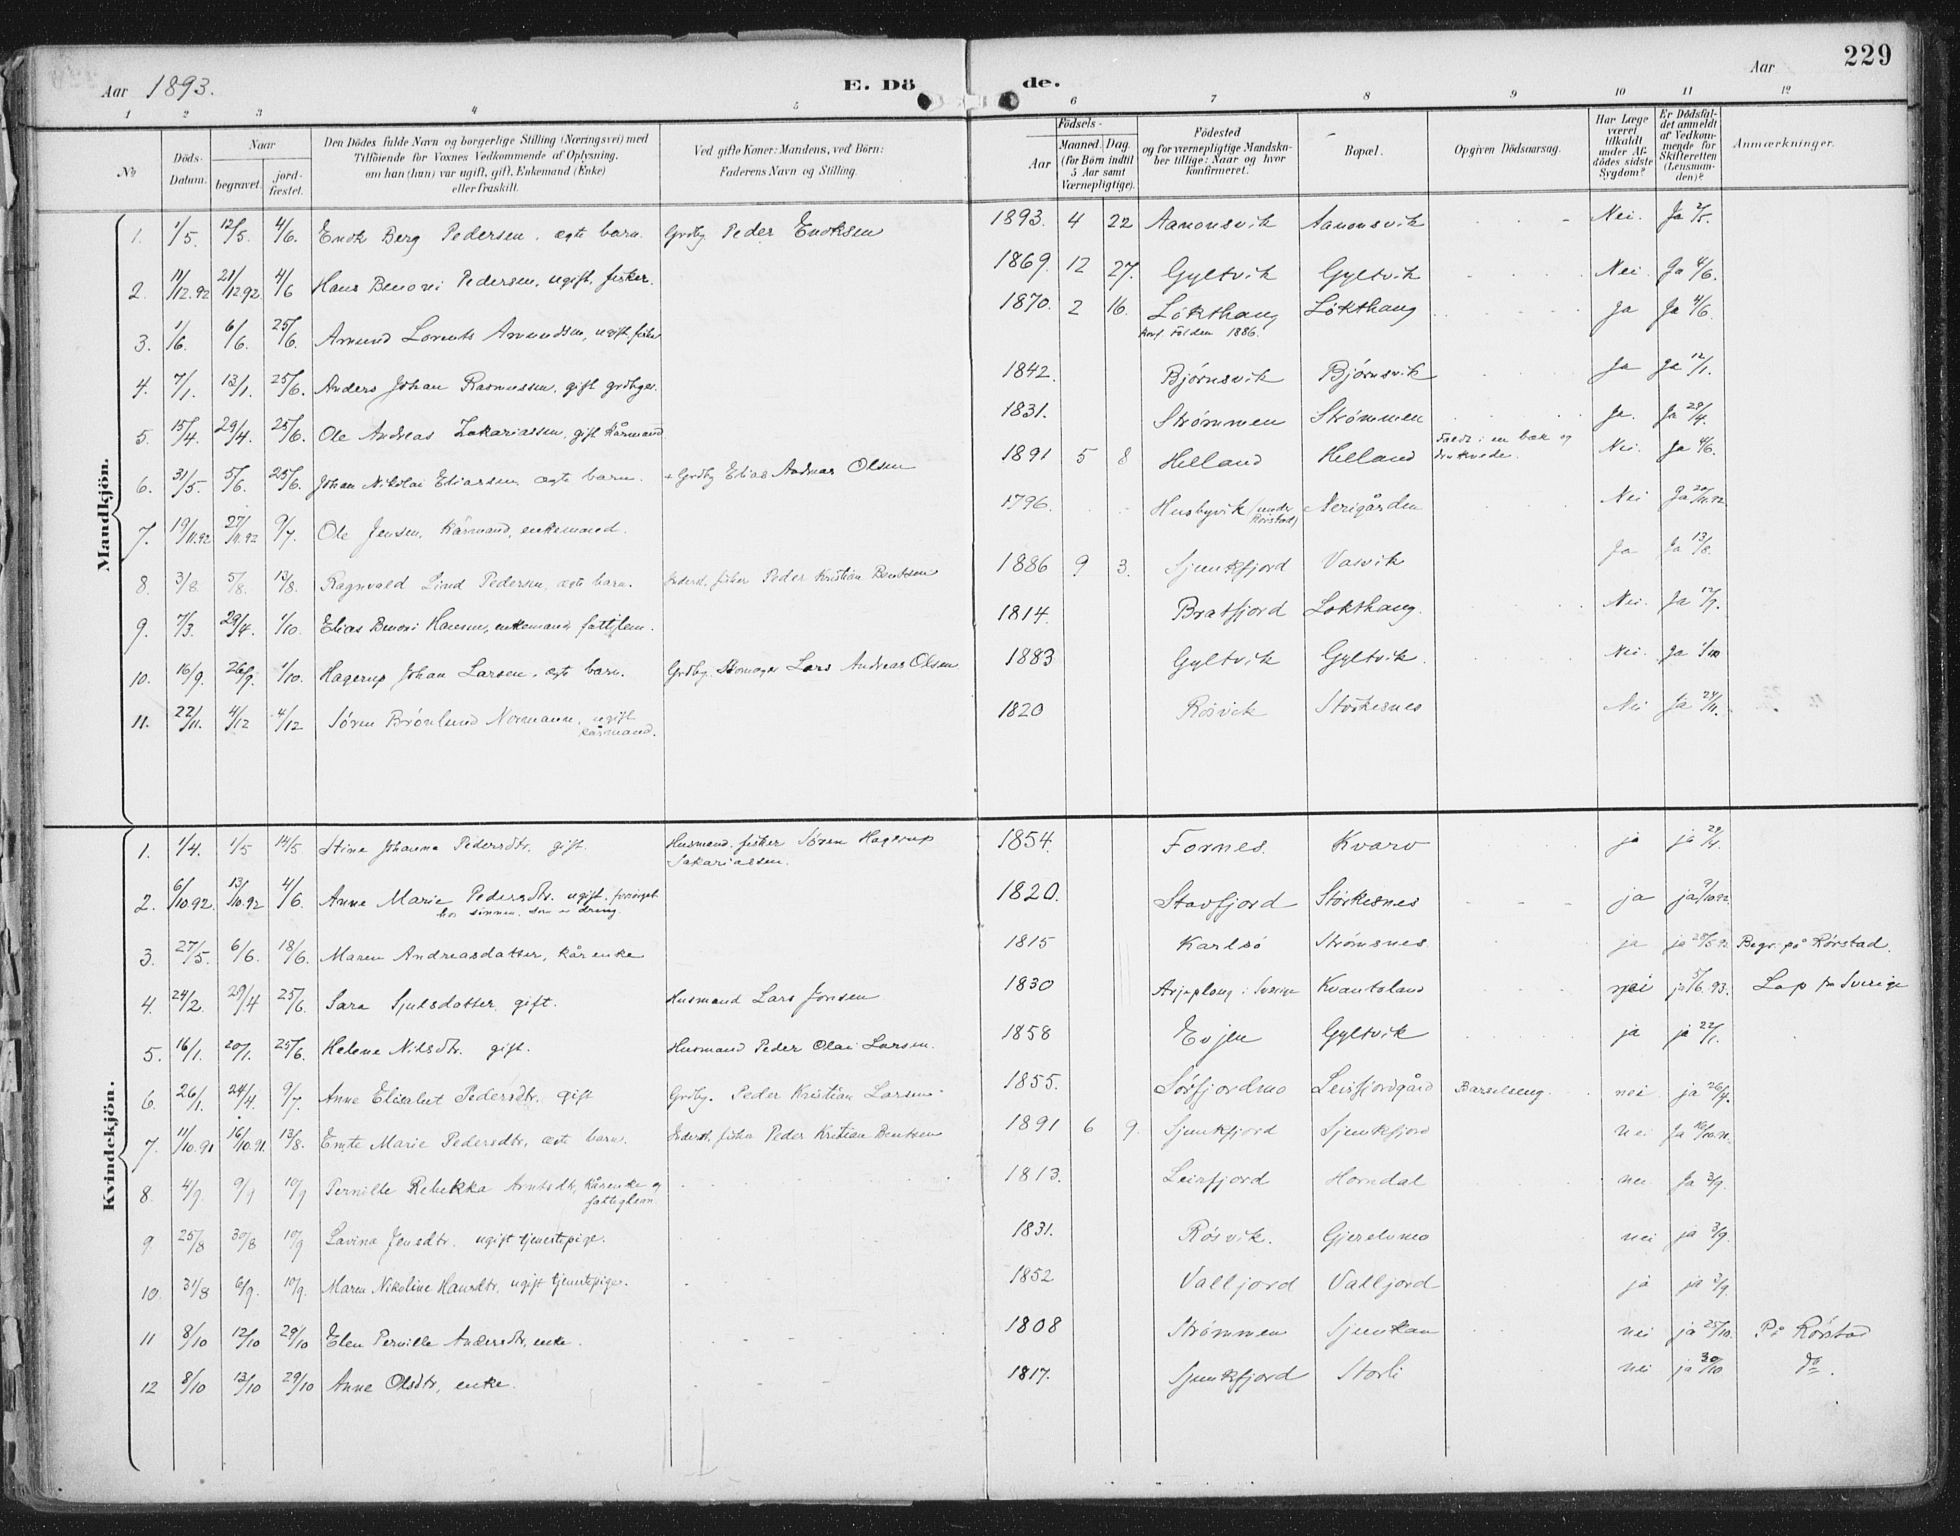 229
Aar 1893. E. Dö de. Aar
1 2 3 4 5 6 7 8 9 10 11 12
No Döds-Datum. Naar begravet. jordfæstet. Den Dödes fulde Navn og borgerlige Stilling (Næringsvei) med Tilföiende for Voxnes Vedkommende af Oplysning, om han (hun) var ugift, gift, Enkemand (Enke) eller fraskilt. Ved gifte Koner: Mandens, ved Börn: Faderens Navn og Stilling. Födsels- Aar Maaned. Dag. (for Börn indtil 5 Aar samt Værnepligtige). Födested og for værnepligtige Mandskaber tillige: Naar og hvor konfirmeret. Bopæl. Opgiven Dödsaarsag. Har Læge været tilkaldt under Afdödes sidste Sygdom? Er Dödsfaldet anmeldt af Vedkommende for Skifteretten (Lensmanden)? Anmærkninger.
Mandkjön.
1. 1/5. 12/5. 4/6. Enok Berg Pedersen, ægte barn. Grdbg. Peder Enoksen 1893. 4 22 Aanonsvik Aanonsvik Nei. Ja 2/5.
2. 11/12.92 21/12.92 4/6 Hans Benoni Pedersen, ugift, fisker. 1869. 12 27. Gyltvik Gyltvik Nei. Ja 4/6.
3. 1/6. 6/6. 25/6. Amund Lorents Amundsen, ugift fisker 1870. 2 16. Løkthaug Løkthaug Ja Ja 4/6.
Konf. Folden 1886.
4. 7/1. 13/1. 25/6. Anders Johan Rasmussen, gift grdbger. 1842. Bjørnsvik Bjørnsvik Ja Ja 12/1.
5. 15/4. 29/4. 25/6. Ole Andreas Zakariassen, gift kårmand 1831. Strømmen Strømmen Ja. Ja 28/4.
6. 31/5. 5/6. 25/6. Johan Nikolai Eliassen, ægte barn. Grdbg Elias Andreas Olsen 1891 5 8 Helland Helland Faldt i en bæk og druknede. Nei. Ja 4/6.
7. 19/11.92 27/11.92 9/7. Ole Jensen, kårmand, enkemand. 1796. Husbyvik (under Rørstad) Nerigården Nei Ja 20/11.92
8. 3/8. 5/8. 13/8. Ragnvald Lind Pedersen, ægte barn. Inderst, fisker Peder Kristian Bentsen 1886 9 3. Sjunkfjord Vasvik Ja Ja 13/8.
9. 7/3. 29/4. 1/10. Elias Benoni Hansen, enkemand, fattiglem. 1814. Bratfjord Løkthaug. Nei. Ja 12/9.
10. 16/9. 26/9. 1/10. Hagerup Johan Larsen, ægte barn. Grdbg. Skomager Lars Andreas Olsen 1883 Gyltvik Gyltvik. Nei. Ja 1/10
11. 22/11. 4/12 4/12 Søren Brønlund Normann, ugift kårmand. 1820 Røsvik Storkesnes Nei Ja 24/11.
Kvindekjön.
1. 1/4. 1/5 14/5. Stina Johanna Pedersdtr. gift. Husmand, fisker Søren Hagerup Sakariassen. 1854. Fornes. Kvarv ja ja
2. 6/10.92. 13/10.92 4/6. Anne Marie Pedersdtr. ugift, forsørget hos sønnen, som er dreng. 1820. Stavfjord Storkesnes ja ja 9/10.92.
3. 27/5. 6/6. 18/6. Maren Andreasdatter, kårenke 1815 Karlsö Strømsnes. ja ja Begr. på Rörstad.
4. 24/2. 29/4 25/6. Sara Sjulsdatter, gift. Husmand Lars Jonsen 1830 Arjeplong i Sverige Kvantoland nei ja 5/6.93. Lap fra Sverige
5. 16/1. 20/1. 25/6. Helene Nilsdtr. gift. Husmand Peder Olai Larsen. 1858 Evjen Gyltvik ja ja 22/1.
6. 26/1. 24/4. 9/7. Anne Elisabet Pedersdtr. gift Grdbg. Peder Kristian Larsen 1855. Sørfjordmo Leirfjordgård Barselseng. nei ja 26/4.
7. 11/10.91 16/10.91. 13/8. Emte Marie Pedersdtr, ægte barn. Inderst, fisker Peder Kristian Bentsen 1891 6 9. Sjunkfjord Sjunkfjord nei Ja 16/10.91.
8. 4/9. 9/9 10/9 Pernille Rebekka Arntsdtr, kårenke og fattiglem 1813. Leirfjord Horndal nei Ja 3/9.
9. 25/8 30/8 10/9 Lavina Jensdtr. ugift tjenestepige. 1831. Rösvik. Gjerelvmo nei ja 3/9.
10. 31/8 6/9. 10/9. Maren Nikoline Hansdtr, ugift tjenestepige. 1852 Valljord Valljord ja ja 3/9.
11 8/10 12/10 29/10 Elen Pernille Andersdtr, enke. 1808 Strømmen Sjunkan nei ja 25/10. På Rörstad
12 8/10 13/10 29/10 Anne Olsdtr, enke. 1817. Sjunkfjord Storli nei ja 30/10 do.